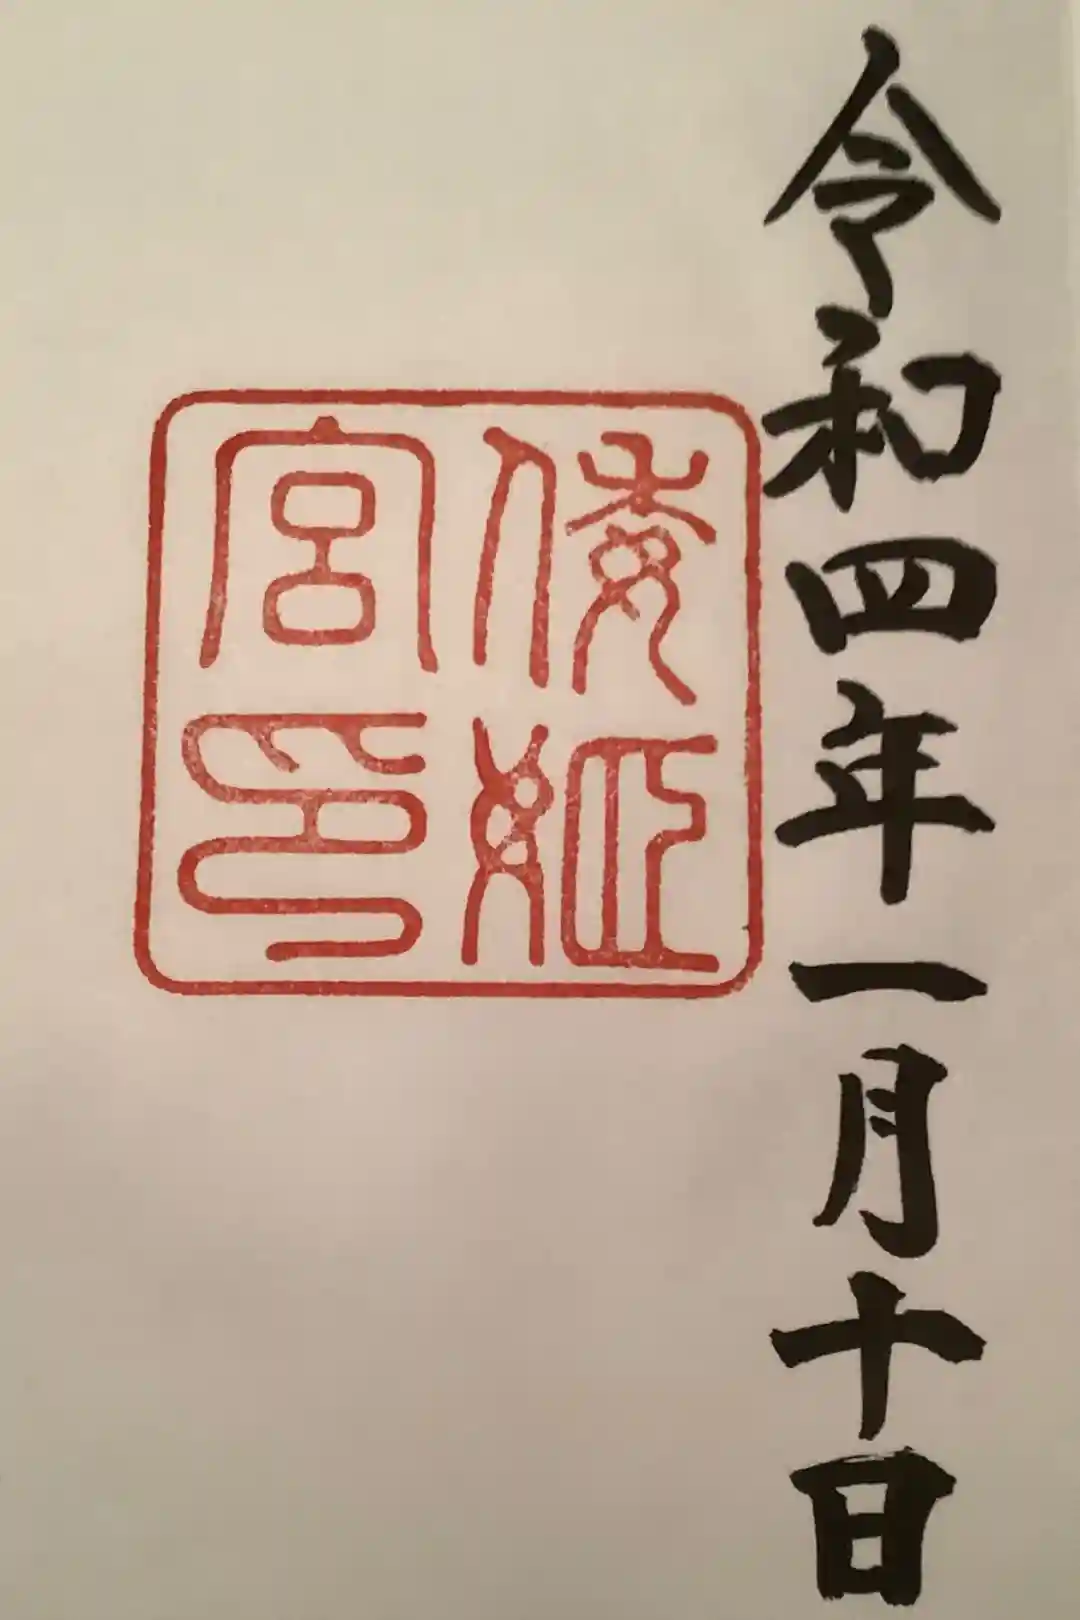 令和四年一月十日
倭姫
宮印